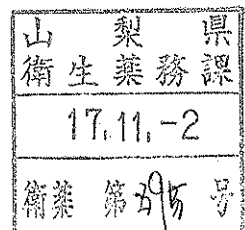 山梨県
衛生薬務課
17.11.-2
衛薬 第 号